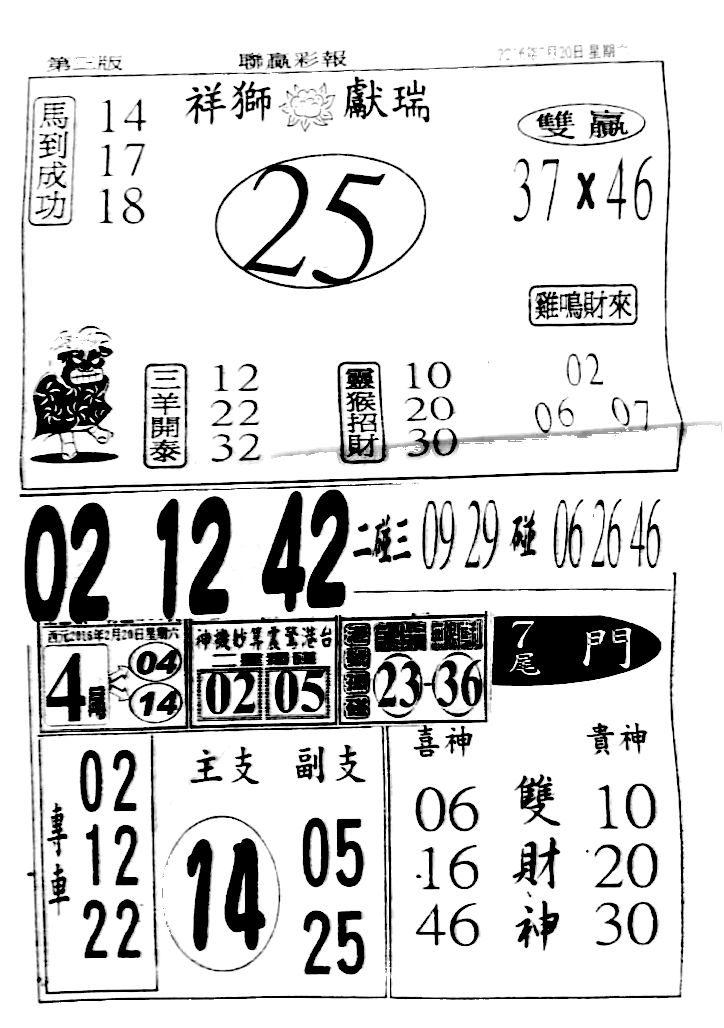 第三版 聯贏彩報 2016年2月20日星期六
祥獅獻瑞
馬到成功
14
17
18
25
雙贏
37×46
雞鳴財來
02
06 07
三羊開泰
12
22
32
靈猴招財
10
20
30
02 12 42
二碰三 09 29 碰 06 26 46
西元2016年2月20日星期六
4尾
04
14
神機妙算震驚港台
02 05
23-36
7尾 門
專車
02
12
22
主支 副支
14
05
25
喜神 貴神
雙財神
06 10
16 20
46 30